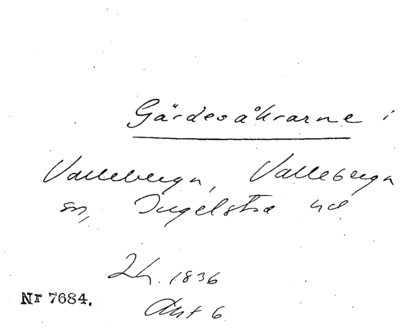 Gärdesåkrarne i
Valleberga, Valleberga
sn, Ingelstad hd
Lh. 1836
Akt 6
Nr 7684.